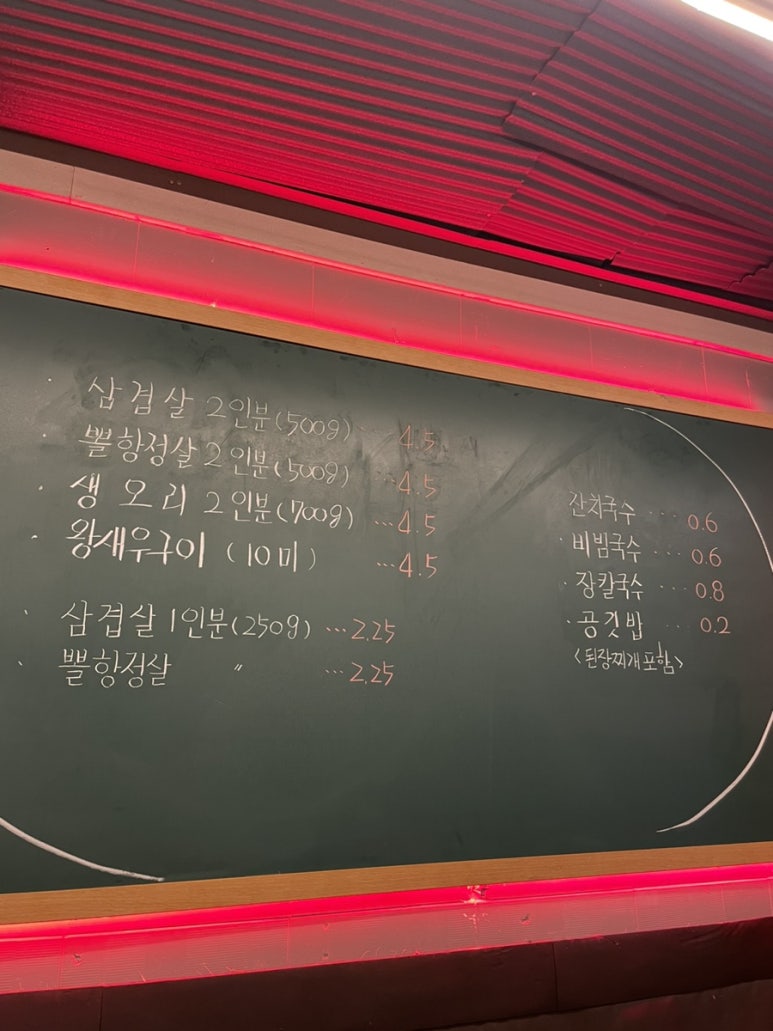 · 삼겹살 2인분(500g) ... 4.5
· 뽈항정살 2인분(500g) ... 4.5
· 생오리 2인분(700g) ... 4.5
· 왕새우구이 (10미) ... 4.5
· 삼겹살 1인분(250g) ... 2.25
· 뽈항정살 〃 ... 2.25
잔치국수 ... 0.6
· 비빔국수 ... 0.6
· 장칼국수 ... 0.8
· 공깃밥 ... 0.2
<된장찌개 포함>